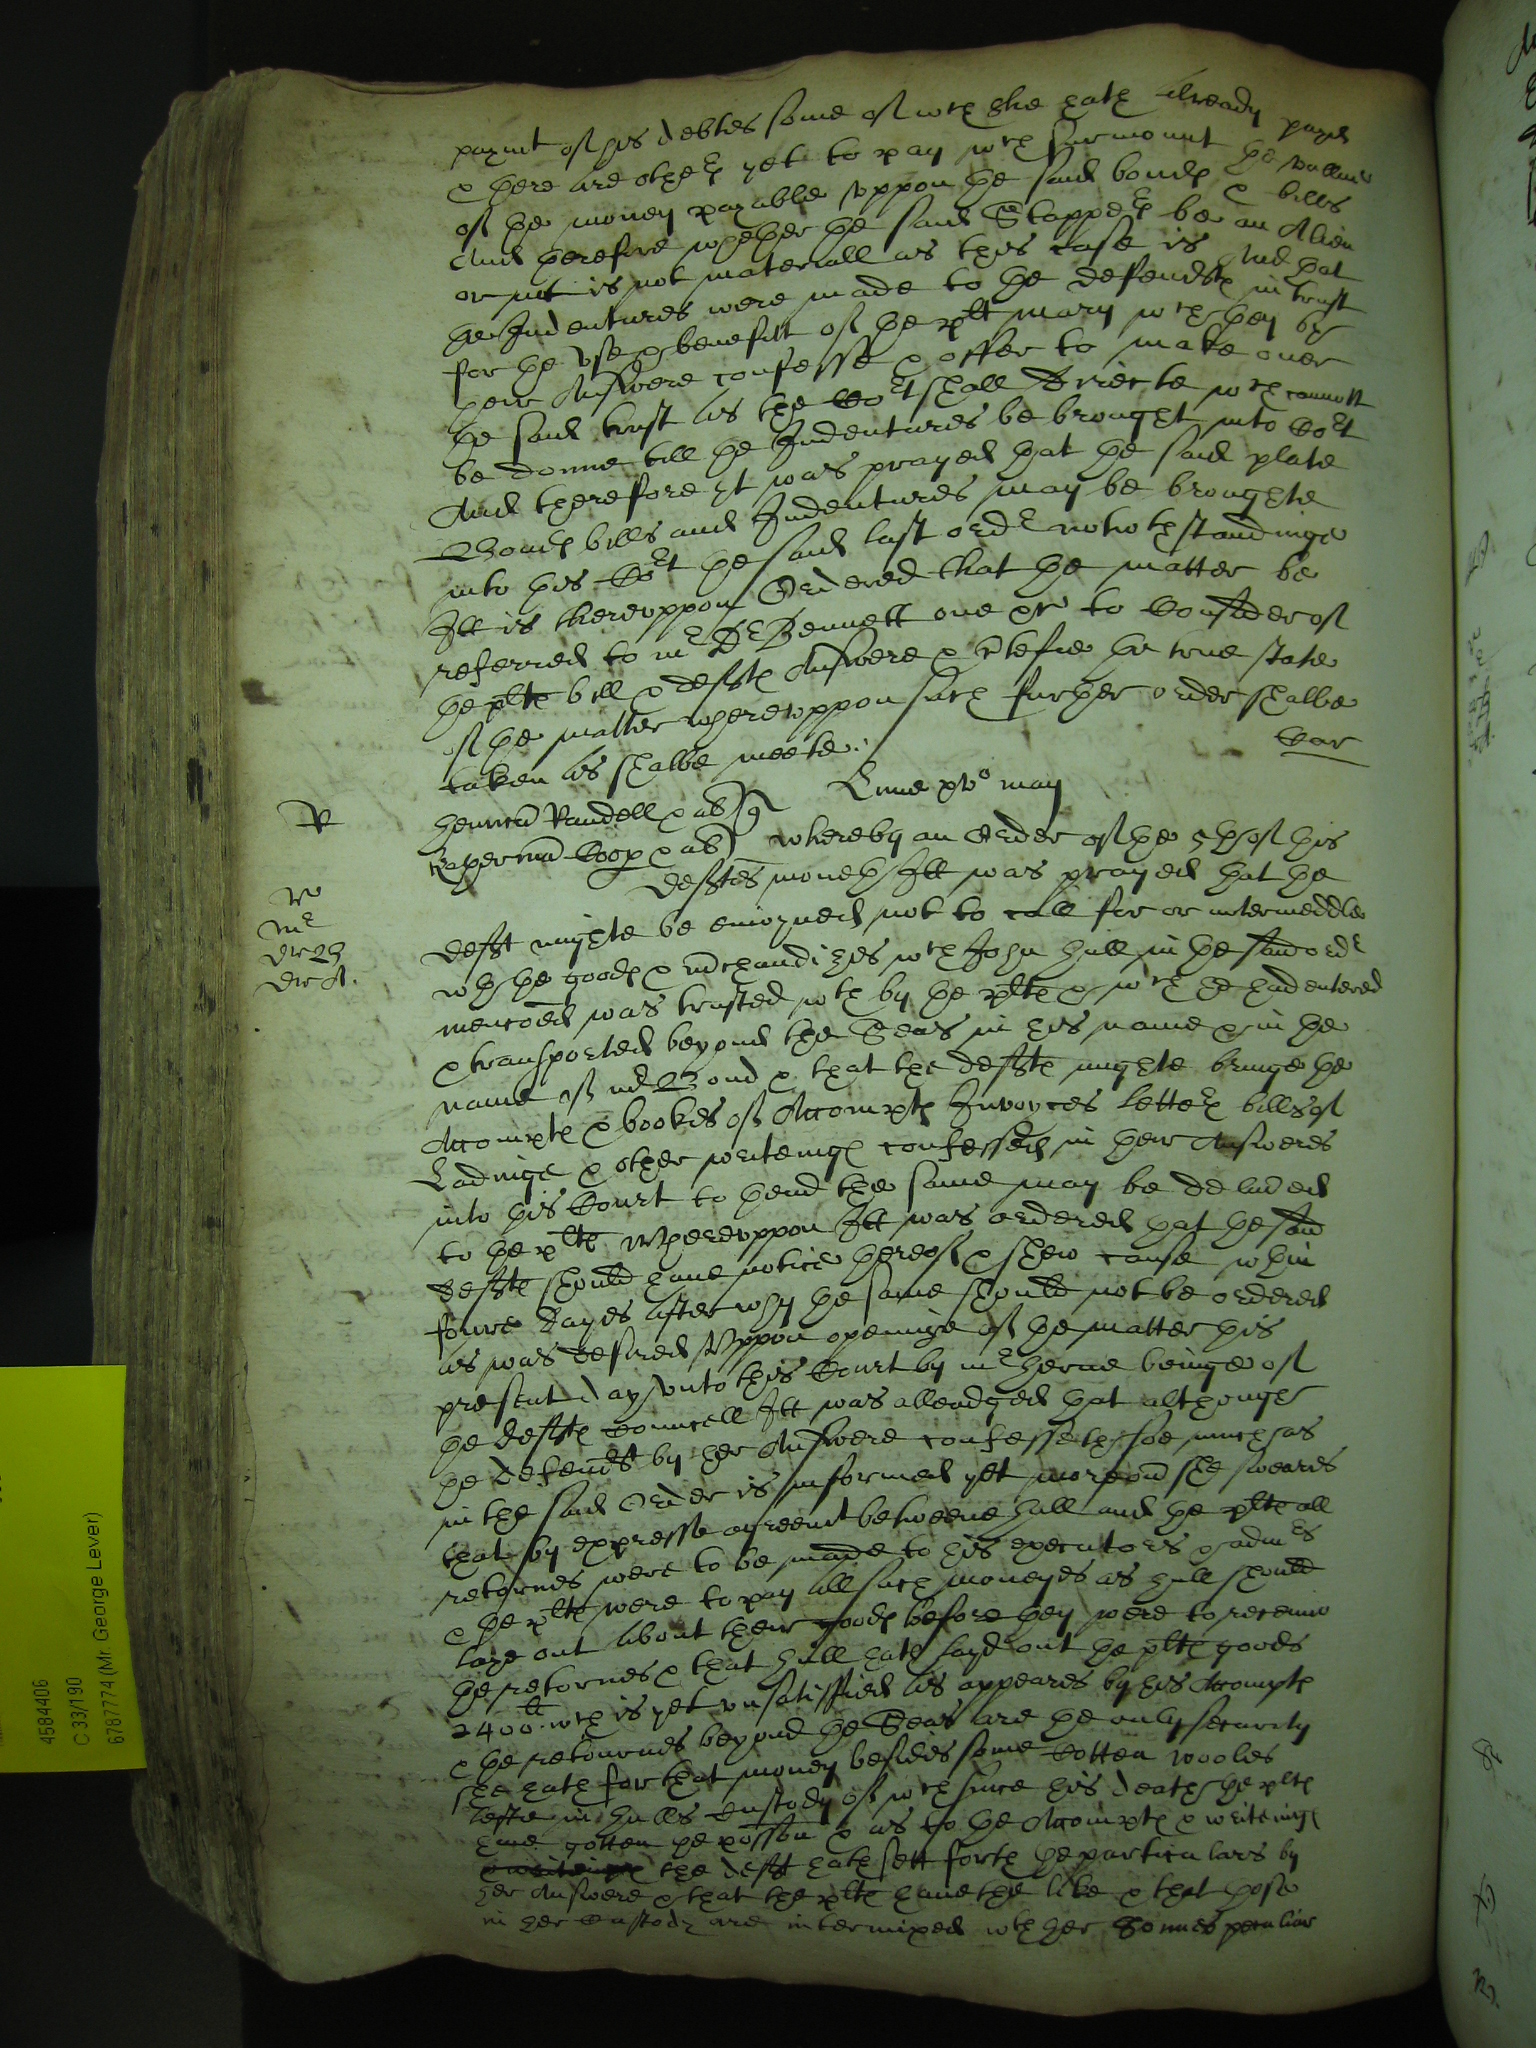 paymt of his debtes some of wch she hath already payd
& there are others yet to pay wch surmount the vallue
of the money payable vppon the said bonds & bills
And therefore whether the said Stapper be an Alien
or not is not materiall as this case is And that
the Indentures were made to the defendts in trust
for the vse & benefitt of the plt Mary wch they by
their Answere confesse & offer to make over
the said trust as the Cort shall directe wch cannott
be donne till the Indentures be brought into Cort
And therefore yt was prayed that the said plate
Bonds bills and Indentures may be broughte
into this Cort the said last order notwthstandinge
Itt is therevppon Ordered that the matter be
referred to mr Dr Bennett one &c to Consider of
the plts bill & defts Answere & certefie the true state
of the matter wherevppon such further order shalbe
taken as shalbe meete.
Lune xvo May
R
Henricu Randell & al
Katherina Coop & al
Whereby an Order of the of this
defendtes moneth Itt was prayed that the
deft mighte be enioyned not to call for or intermeddle
wth the goods & mchandizes wch John Hill in the said ordr
mencoed was trusted wth by the plts & wch he had entered
& transported beyond the Seas in his name & in the
name of Bond & that the defts mighte bringe the
Accompts & bookes of Accompts Invoyces letters bills of
Ladinge & other writeings confessed in their Answeres
into this Court to thend the same may be delivred
to the plts Wherevppon Itt was ordered that the said
defts should have notice thereof & shew cause wthin
fowre dayes after why the same should not be ordered
as was desired Vppon openinge of the matter this
present day vnto this Court by mr Herne beinge of
the defts Councell Itt was alleadged that althoughe
the defendt by her Answere confesseth soe much as
in the said Order is informed yet moreover she sweares
that by expresse agreemt betweene Hill and the plts all
retornes were to be made to his executors & admrs
& the plts were to pay all such moneyes as Hill should
laye out about their goods before they were to receive
the retornes & that Hill hath layd out the plts goods
2400ll wch is yet vnsatisfied as appeares by his Accompts
& the retournes beyond the Seas are the only security
she hath for that money besides some Cotten woolles
lefte in Hills Custody of wch since his death the plts
have gotten the possion & as to the Accompts & writeings
the deft hath sett forth the particulars by
her Answere & that the plts have the like & that those
in her Custody are intermixed wth her Sonnes peculiar
4584406
C 33/190
6787774 (Mr. George Lever)